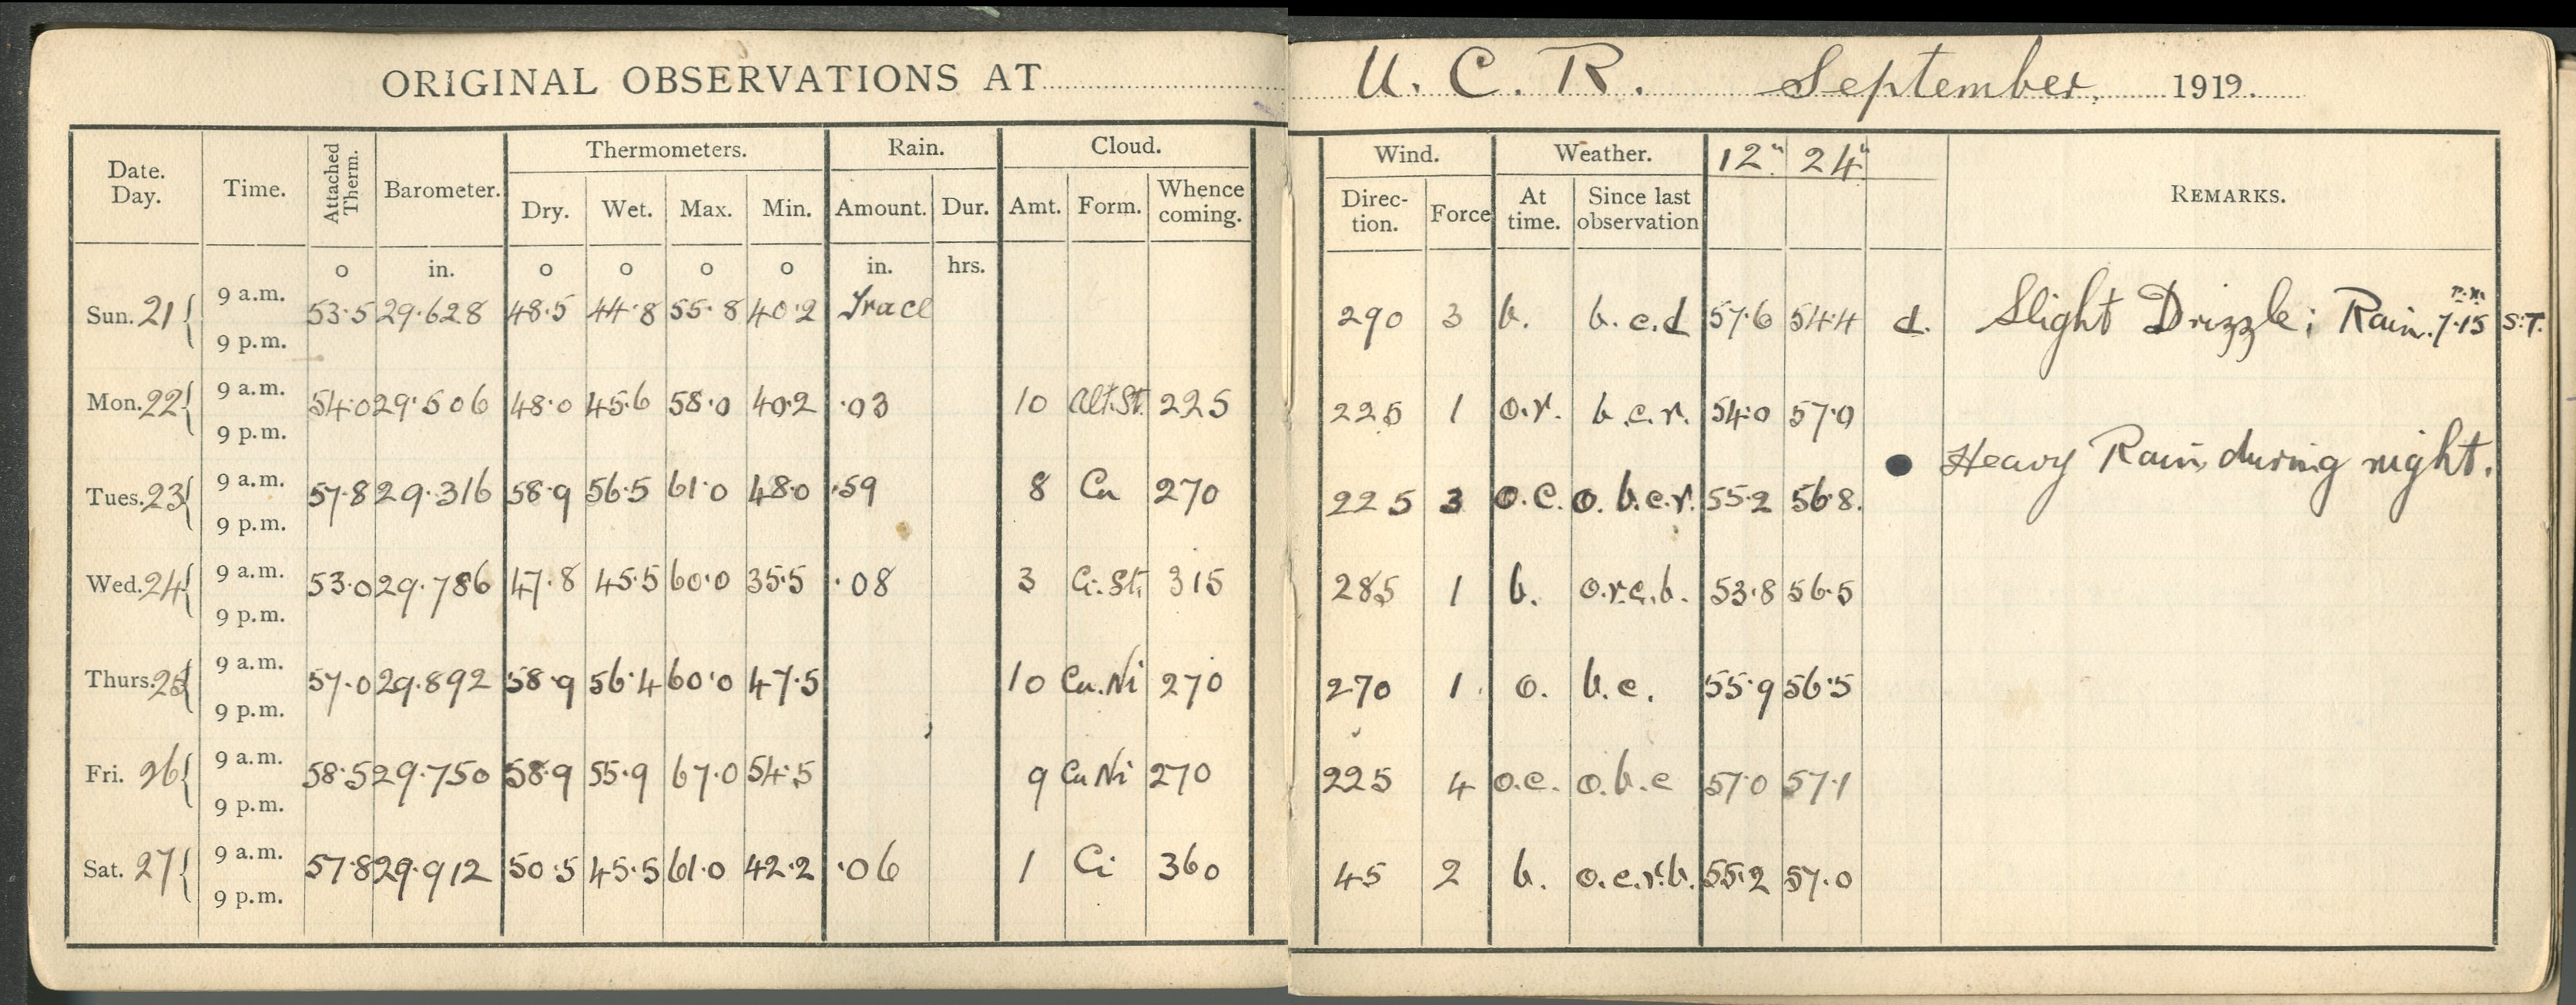 ORIGINAL OBSERVATIONS AT U. C. R. September. 1919.
Date. Day. Time. Attached Therm. Barometer. Thermometers. Rain. Cloud. Wind. Weather. 12" 24" REMARKS.
Dry. Wet. Max. Min. Amount. Dur. Amt. Form. Whence coming. Direc-tion. Force At time. Since last observation
o in. o o o o in. hrs.
Sun. 21 { 9 a.m. 53.5 29.628 48.5 44.8 55.8 40.2 Trace 290 3 b. b.c.d 57.6 54.4 d. Slight Drizzle; Rain. 7.15 p.m. S.T.
9 p.m.
Mon. 22 { 9 a.m. 54.0 29.506 48.0 45.6 58.0 40.2 .03 10 Alt.St. 225 225 1 o.r. b.c.r. 54.0 57.0
9 p.m.
● Heavy Rain during night.
Tues. 23 { 9 a.m. 57.8 29.316 58.9 56.5 61.0 48.0 .59 8 Cu 270 225 3 o.c. o.b.c.r. 55.2 56.8.
9 p.m.
Wed. 24 { 9 a.m. 53.0 29.786 47.8 45.5 60.0 35.5 .08 3 Ci.St. 315 285 1 b. o.r.c.b. 53.8 56.5
9 p.m.
Thurs. 25 { 9 a.m. 57.0 29.892 58.9 56.4 60.0 47.5 10 Cu.Ni 270 270 1 o. b.c. 55.9 56.5
9 p.m.
Fri. 26 { 9 a.m. 58.5 29.750 58.9 55.9 67.0 54.5 9 Cu Ni 270 225 4 o.c. o.b.c 57.0 57.1
9 p.m.
Sat. 27 { 9 a.m. 57.8 29.912 50.5 45.5 61.0 42.2 .06 1 Ci 360 45 2 b. o.c.r.b. 55.2 57.0
9 p.m.